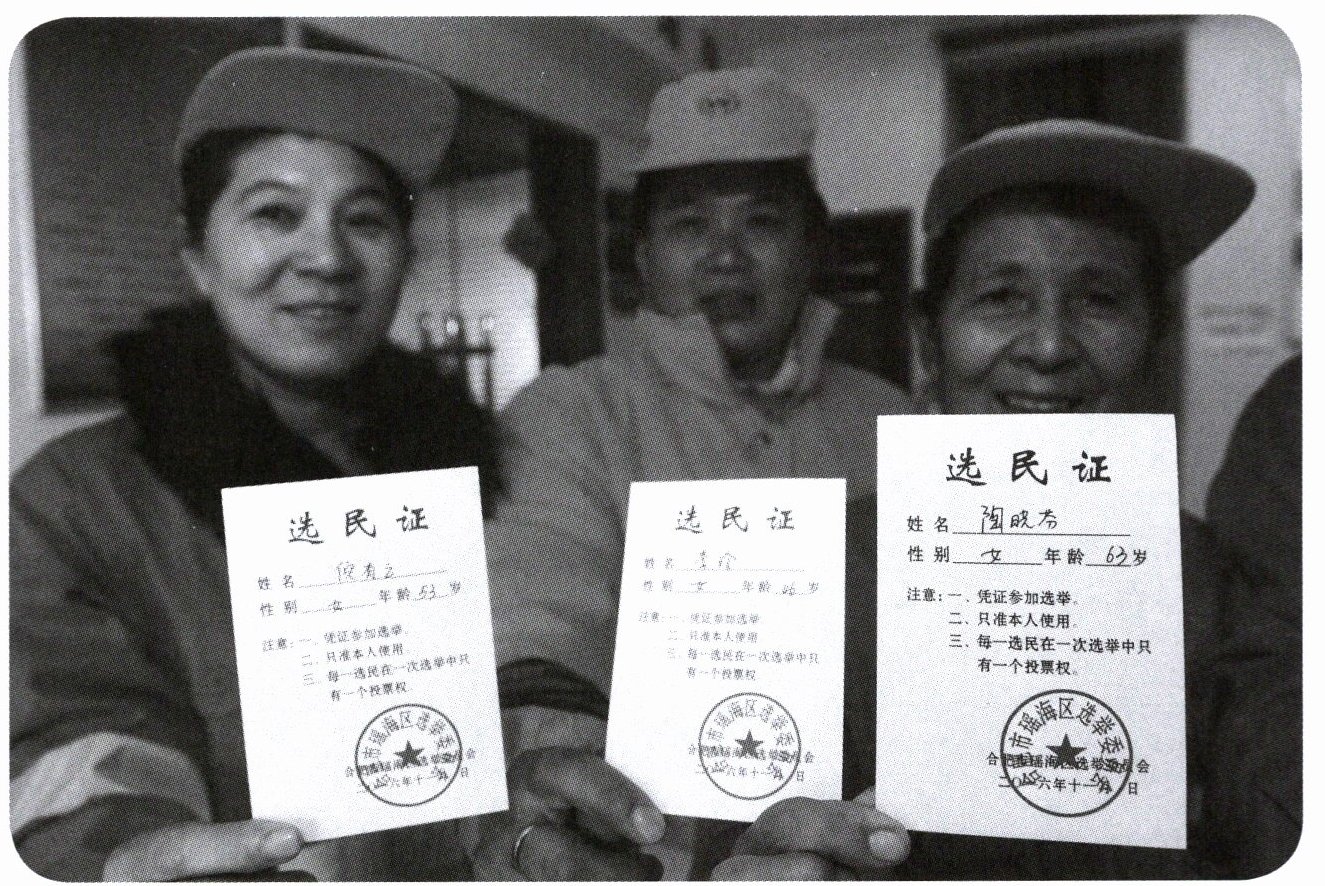 选民证
姓名 倪有云
性别 女 年龄 53 岁
注意：一、凭证参加选举。
二、只准本人使用。
三、每一选民在一次选举中只
有一个投票权。
合肥市瑶海区选举委员会
二〇〇六年十一月 日
选民证
姓名 李
性别 女 年龄 46 岁
注意：一、凭证参加选举。
二、只准本人使用。
三、每一选民在一次选举中只
有一个投票权。
合肥市瑶海区选举委员会
二〇〇六年十一月 日
选民证
姓名 陶晓芳
性别 女 年龄 63 岁
注意：一、凭证参加选举。
二、只准本人使用。
三、每一选民在一次选举中只
有一个投票权。
合肥市瑶海区选举委员会
二〇〇六年十一月 日